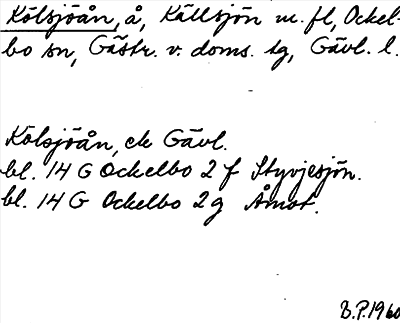 Kölsjöån, å, Källsjön m. fl, Ockel-
bo sn, Gästr. v. doms. tg, Gävl. l.
Kölsjöån, ek Gävl.
bl. 14 G Ockelbo 2 f Styvjesjön.
bl. 14 G Ockelbo 2 g Åmot.
B.P. 1960